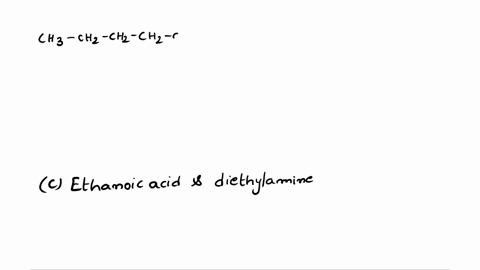 CH3-CH2-CH2-CH2-
(C) Ethanoic acid & diethylamine